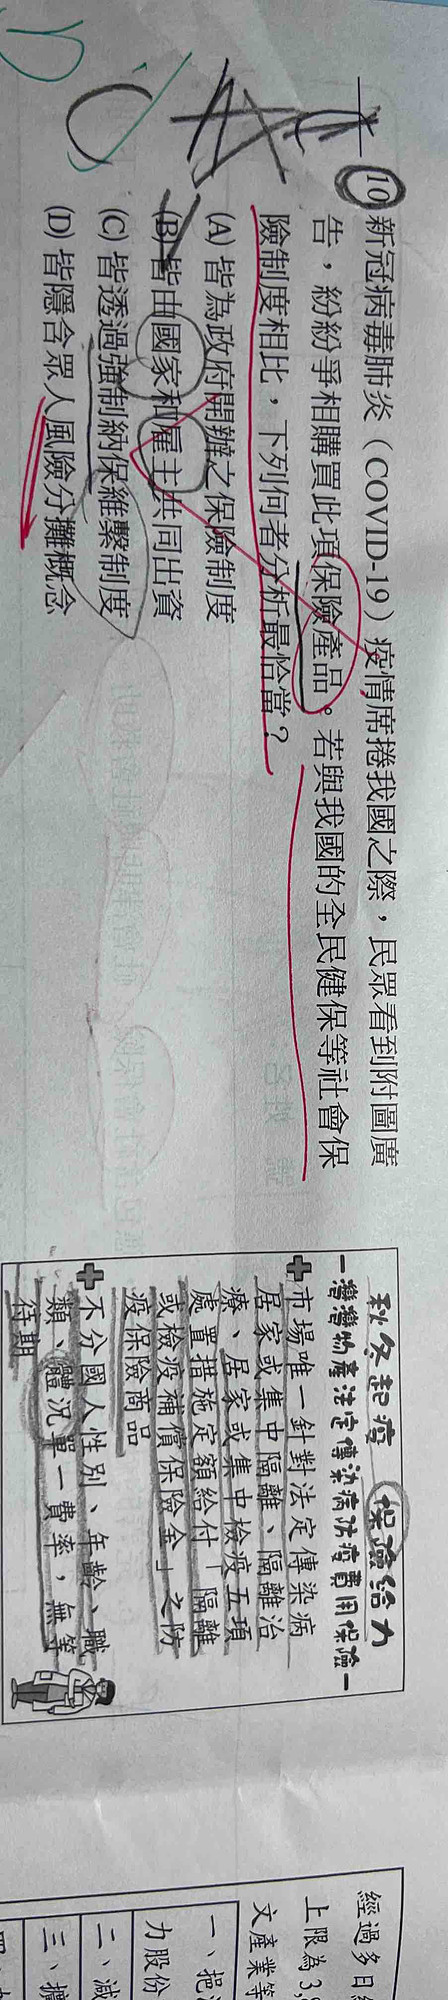 10 新冠病毒肺炎（COVID-19）疫情席捲我國之際，民眾看到附圖廣
告，紛紛爭相購買此項保險產品。若與我國的全民健保等社會保
險制度相比，下列何者分析最恰當？
(A) 皆為政府開辦之保險制度
(B) 皆由國家和雇主共同出資
(C) 皆透過強制納保維繫制度
(D) 皆隱含眾人風險分攤概念
秋冬起疫 保險給力
－灣灣物產法定傳染病防疫費用保險－
市場唯一針對法定傳染病
居家或集中隔離、隔離治
療、居家或集中檢疫五項
處置措施定額給付「隔離
或檢疫補償保險金」之防
疫保險商品
不分國人性別、年齡、職
類、體況單一費率，無等
待期
經過多日
上限為3,
文產業等
一、把
力股份
二、減
三、擴